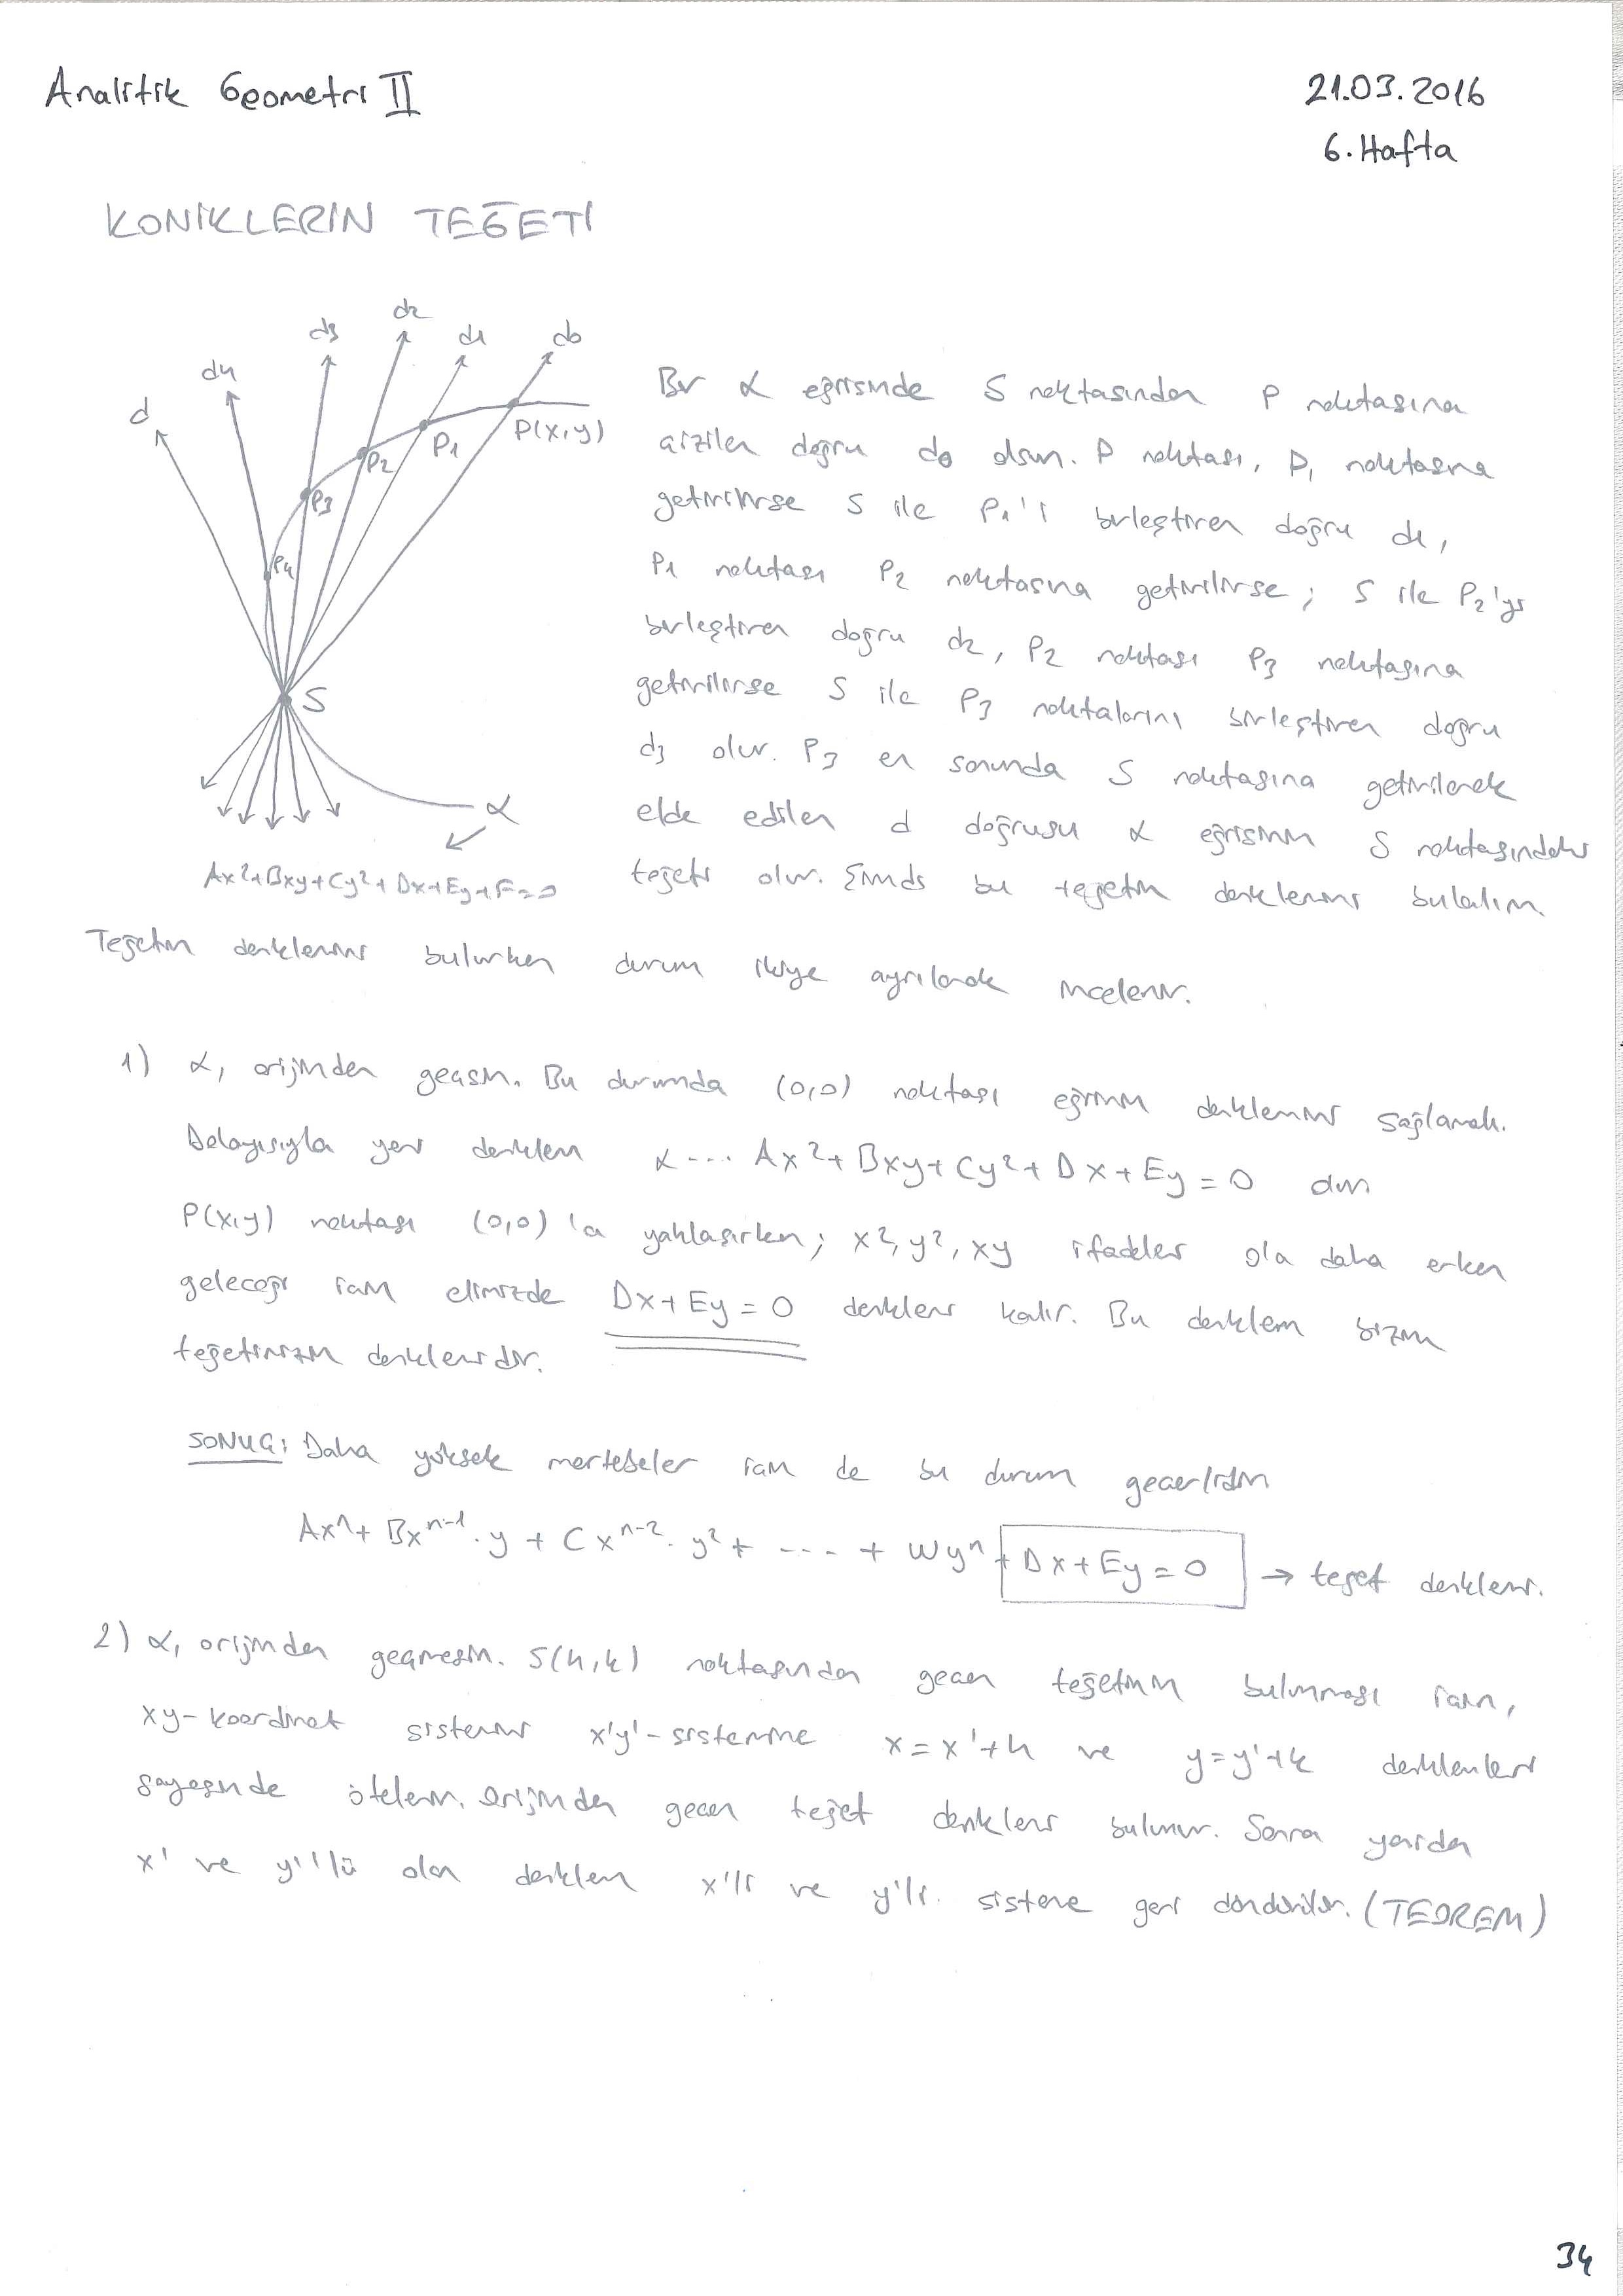 Analitik Geometri II
21.03.2016
6.Hafta
KONİKLERİN TEĞETİ
d
d4
d3
d2
d1
d0
P(x,y)
P1
P2
P3
P4
S
α
Ax²+Bxy+Cy²+Dx+Ey+F=0
Bir α eğrisinde S noktasından P noktasına
çizilen doğru d0 olsun. P noktası, P1 noktasına
getirilirse S ile P1'i birleştiren doğru d1,
P1 noktası P2 noktasına getirilirse; S ile P2'yi
birleştiren doğru d2, P2 noktası P3 noktasına
getirilirse S ile P3 noktalarını birleştiren doğru
d3 olur. P3 en sonunda S noktasına getirilerek
elde edilen d doğrusu α eğrisinin S noktasındaki
teğeti olur. Şimdi bu teğetin denklemini bulalım.
Teğetin denklemini bulurken durum ikiye ayrılarak incelenir.
1) α, orijinden geçsin. Bu durumda (0,0) noktası eğrinin denklemini sağlamalı.
Dolayısıyla yeni denklem α... Ax²+Bxy+Cy²+Dx+Ey=0 olur.
P(x,y) noktası (0,0)'a yaklaşırken; x², y², xy ifadeler 0'a daha erken
geleceği için elimizde Dx+Ey=0 denklemi kalır. Bu denklem bizim
teğetimizin denklemidir.
SONUÇ: Daha yüksek mertebeler için de bu durum geçerlidir
Axⁿ+Bxⁿ⁻¹.y+Cxⁿ⁻².y²+....+Wyⁿ+Dx+Ey=0 → teğet denklemi.
2) α, orijinden geçmesin. S(h,k) noktasından geçen teğetinin bulunması için,
xy-koordinat sistemi x'y'-sistemine x=x'+h ve y=y'+k denklemleri
sayesinde ötelenir. Orijinden geçen teğet denklemi bulunur. Sonra yeniden
x' ve y''lü olan denklem x'li ve y'li sisteme geri döndürülür. (TEOREM)
34